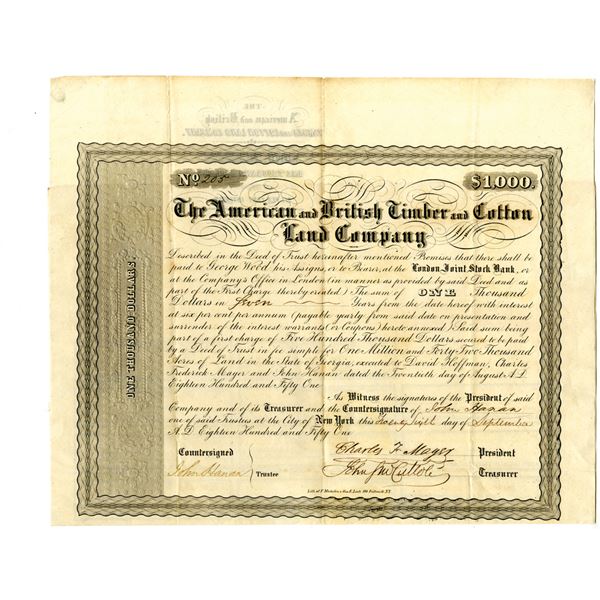 THE
American and British
TIMBER AND COTTON LAND COMPANY.
ONE THOUSAND DOLLARS.
No 205
$1,000.
The American and British Timber and Cotton
Land Company
Described in the Deed of Trust hereinafter mentioned Promises that there shall be
paid to George Wood his Assigns, or to Bearer, at the London Joint Stock Bank, or
at the Company's Office in London (in manner as provided by said Deed and as
part of the First Charge thereby created) The sum of ONE Thousand
Dollars in Years from the date hereof with interest
at six per cent per annum (payable yearly from said date on presentation and
surrender of the interest warrants (or Coupons) hereto annexed) Said sum being
part of a first charge of Five Hundred Thousand Dollars secured to be paid
by a Deed of Trust in fee simple for One Million and Forty-Two Thousand
Acres of Land in the State of Georgia, executed to David Hoffman, Charles
Frederick Mayer and John Hanan dated the Twentieth day of August A.D.
Eighteen Hundred and Fifty One
As Witness the signatures of the President of said
Company and of its Treasurer and the Countersignature of John Hanan
one of said Trustees at the City of New York this day of September
A.D. Eighteen Hundred and Fifty One
Countersigned
Charles F. Mayer President
John Hanan Trustee
Treasurer